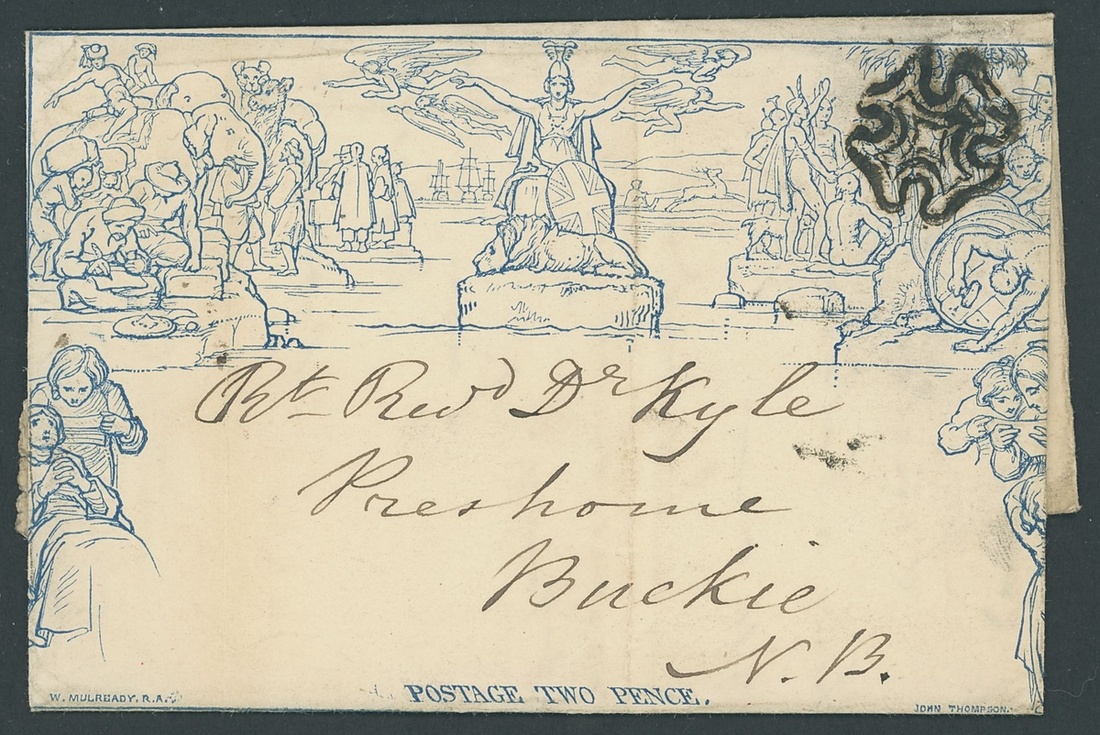 Rt Revd Dr Kyle
Preshome
Buckie
N.B.
W. MULREADY, R.A.
POSTAGE TWO PENCE.
JOHN THOMPSON.